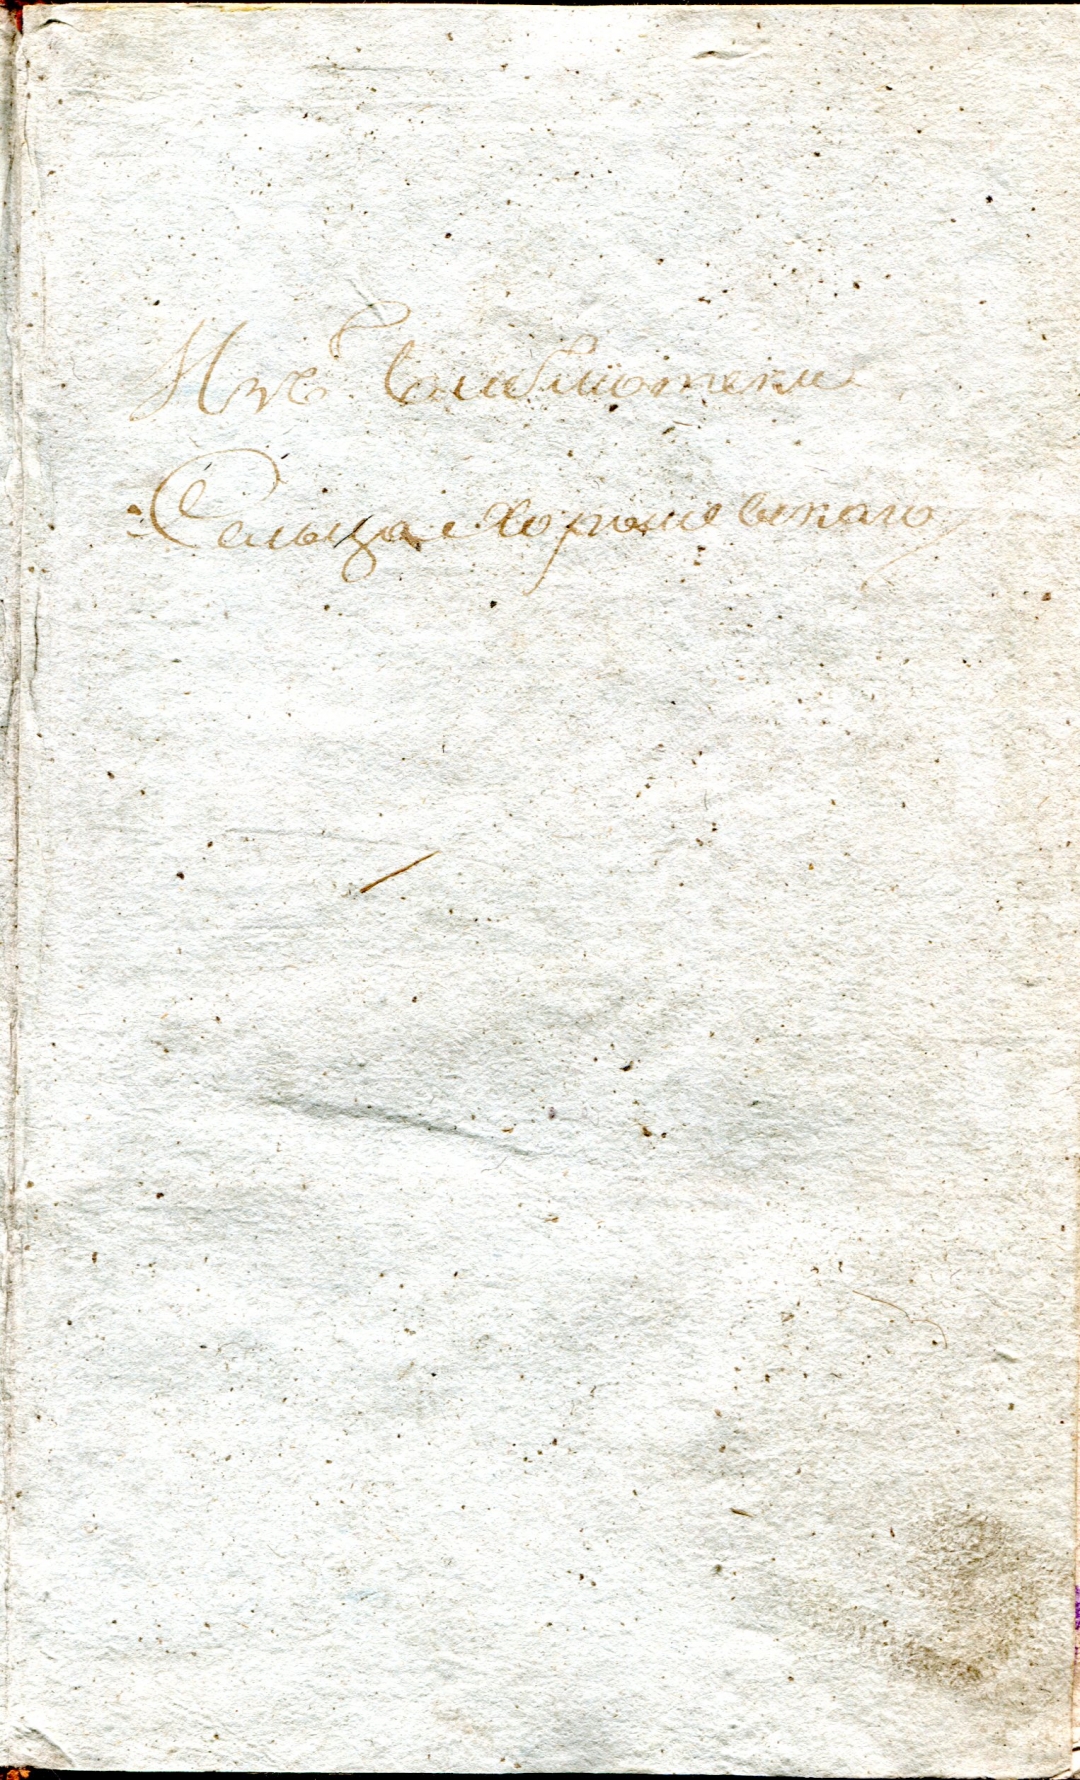 Изъ библиотеки
Сельца Хорошевскаго